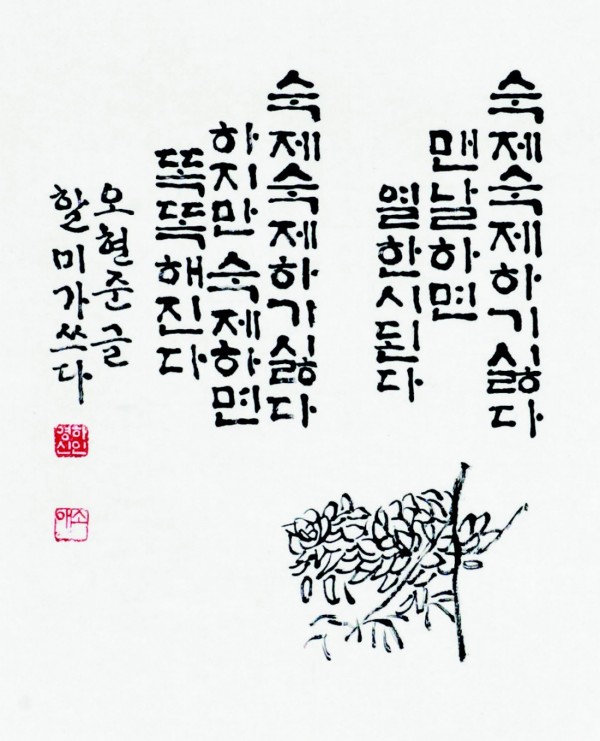 숙제숙제하기싫다
맨날하면
열한시된다
숙제숙제하기싫다
하지만 숙제하면
똑똑해진다
오현준 글
할미가쓰다
하인
영신